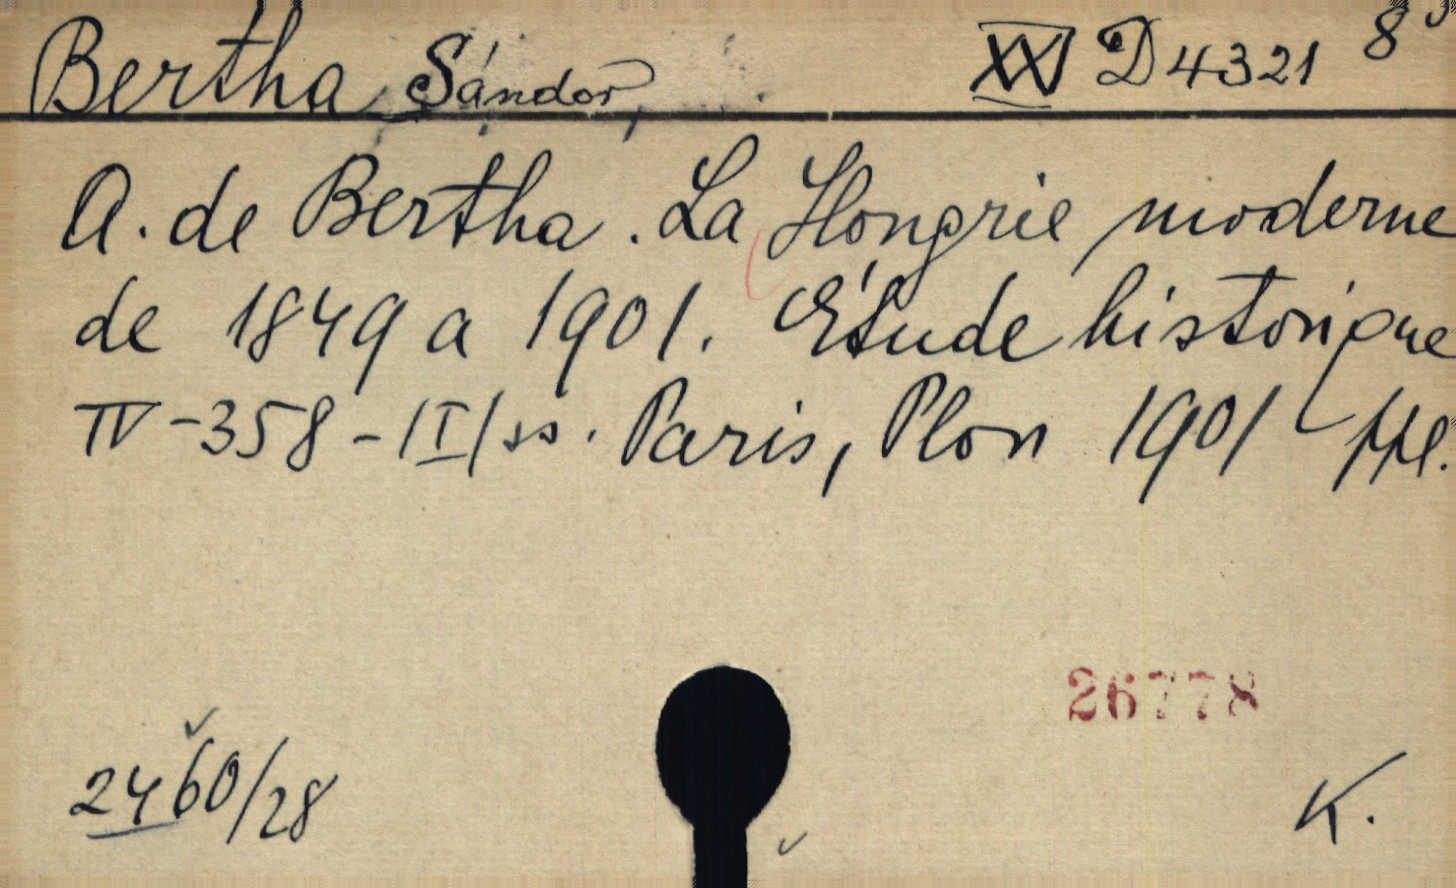 Bertha Sándor, XV D 4321 8°
A. de Bertha. La Hongrie moderne
de 1849 a 1901. Étude historique
IV-358-|I| ss. Paris, Plon 1901 ppl.
2460/28
26778
K.